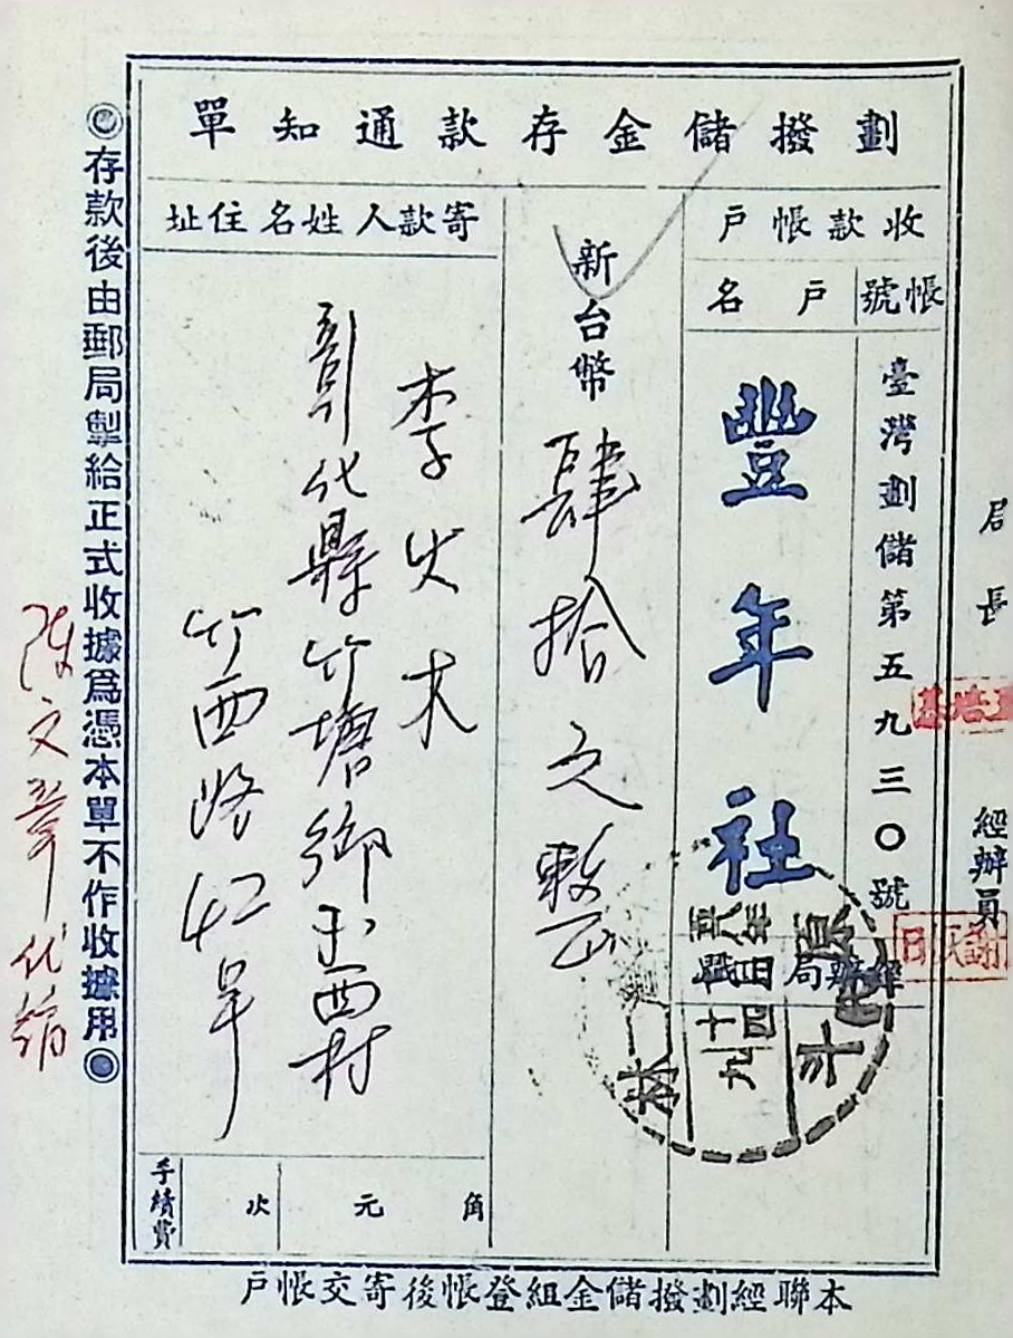 劃撥儲金存款通知單
收款帳戶
帳號
戶名
臺灣劃儲第五九三〇號
豐年社
新台幣
肆拾元整
寄款人姓名住址
李火木
彰化縣竹塘鄉竹西村
竹西路42号
經辦局
手續費
次
元
角
局長
經辦員
◎存款後由郵局掣給正式收據為憑本單不作收據用◎
本聯經劃撥儲金組登帳後寄交帳戶